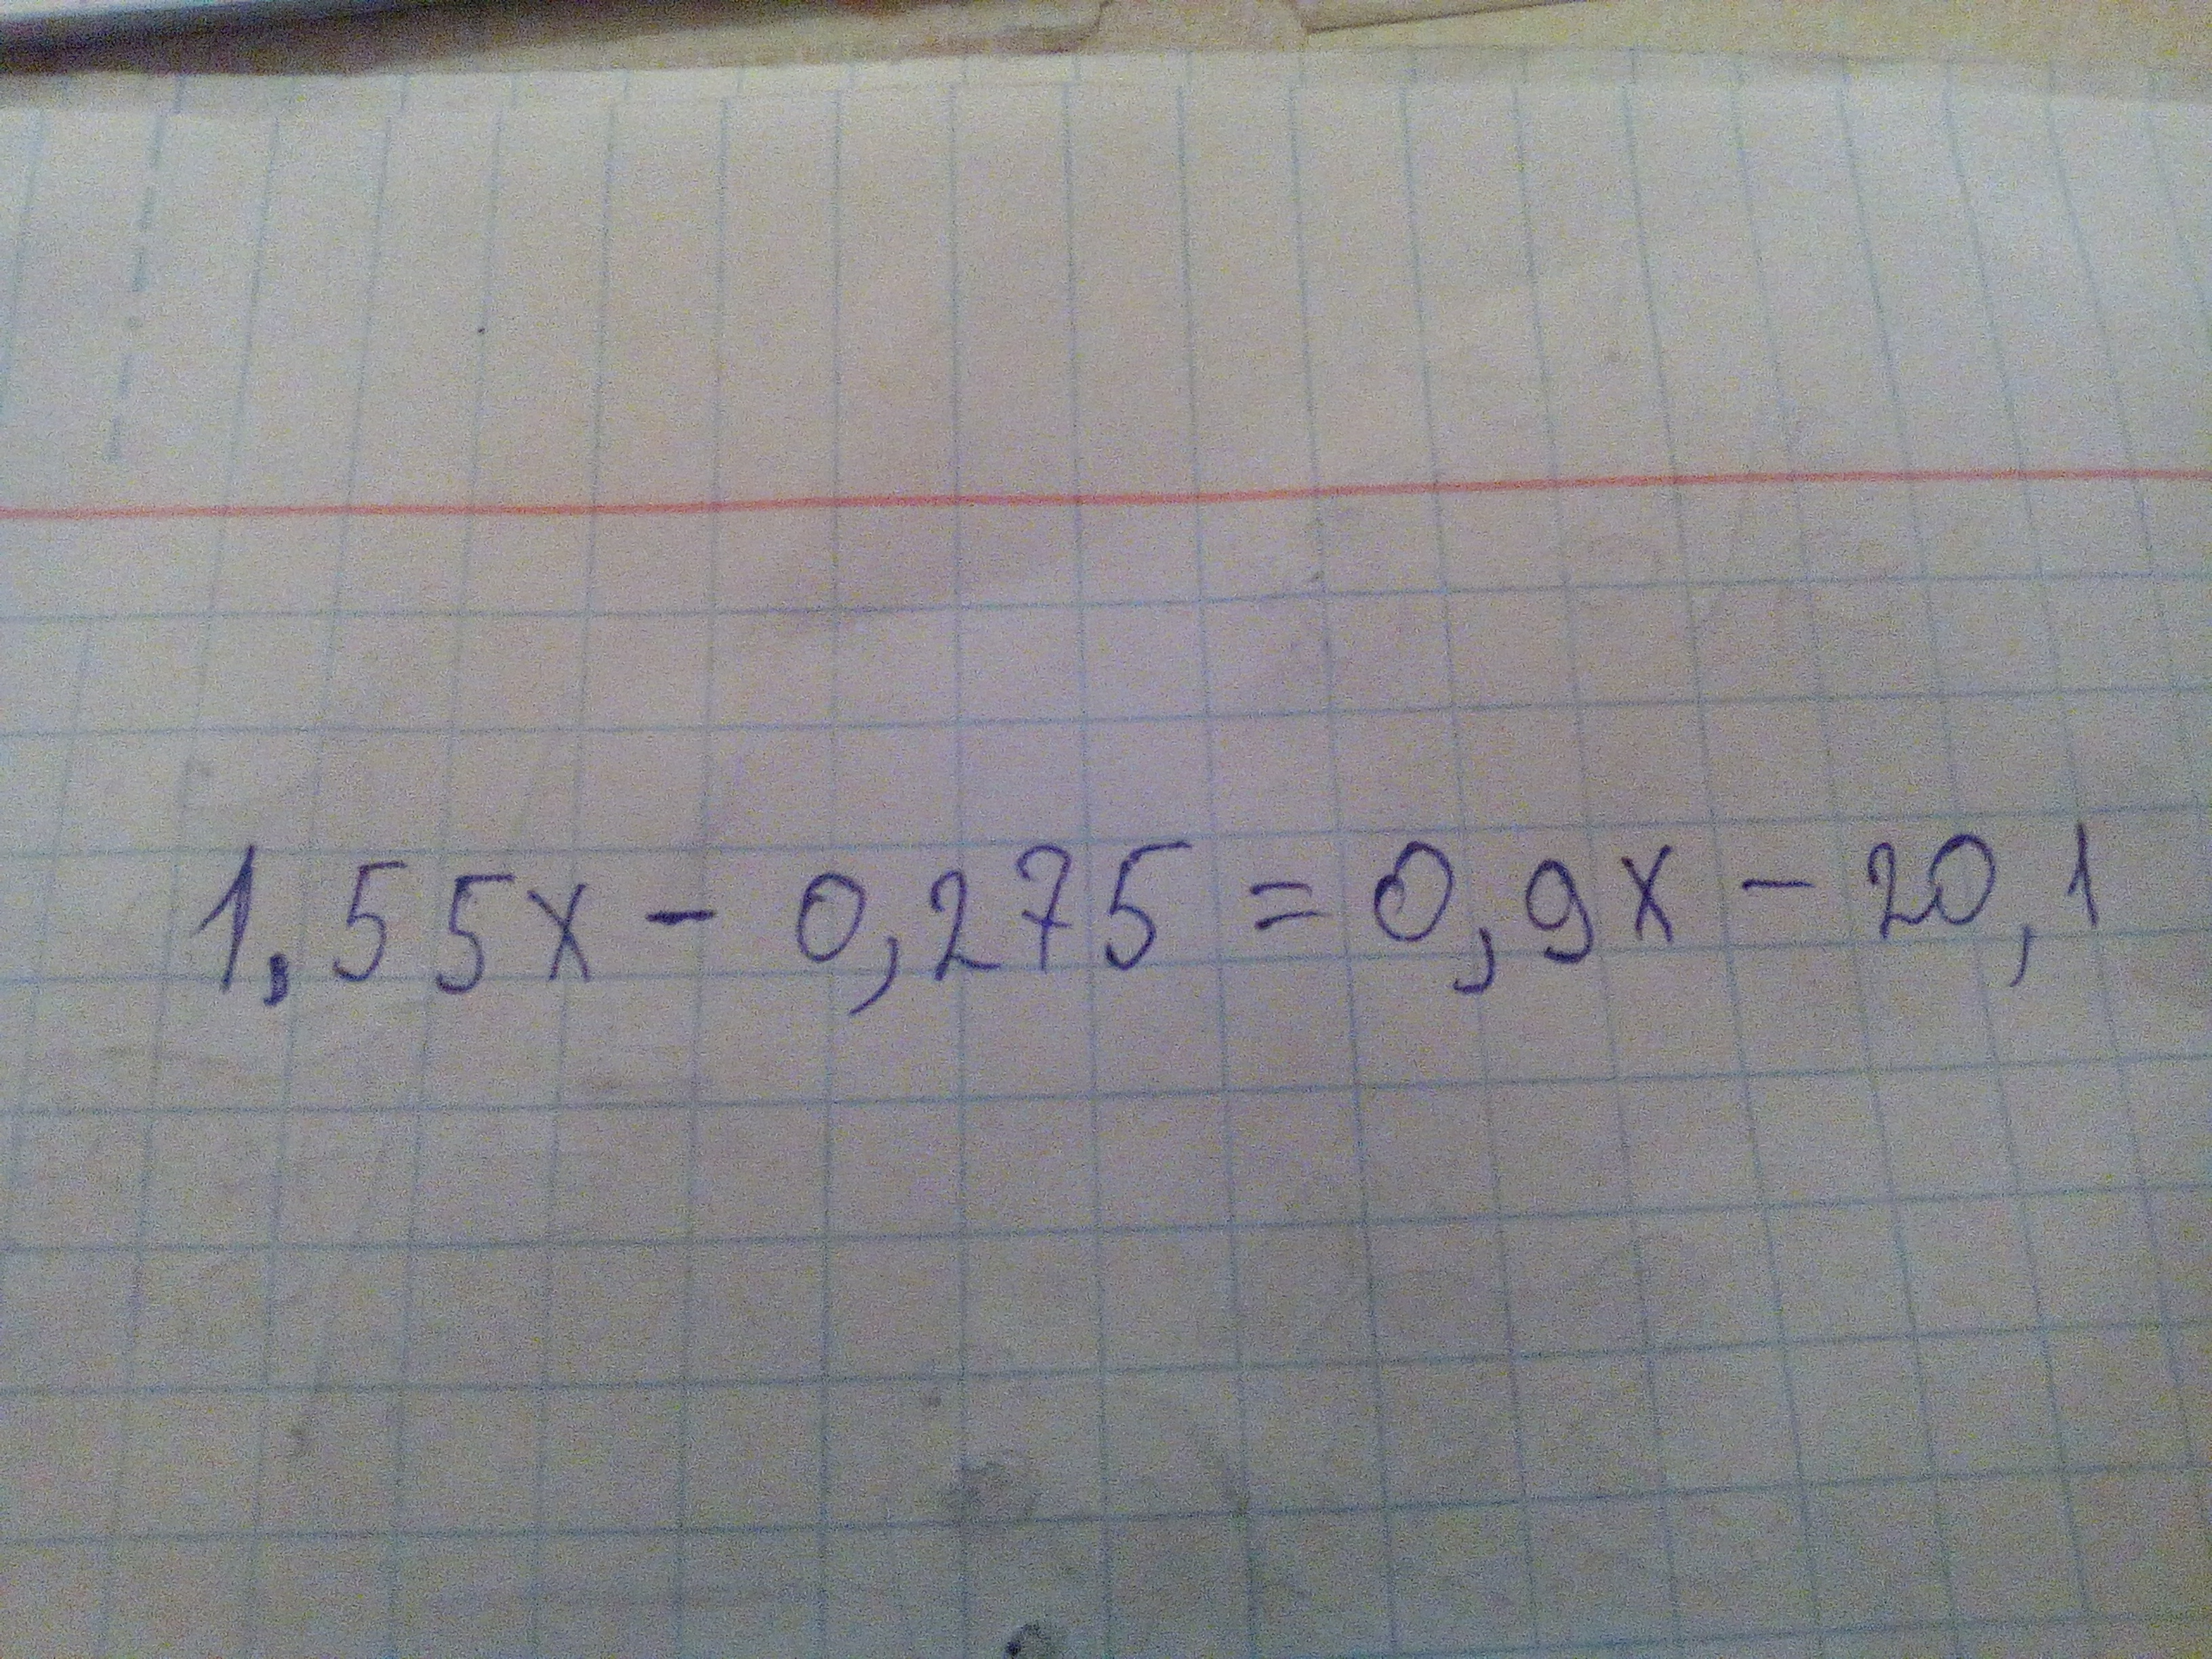 1,55x - 0,275 = 0,9x - 20,1